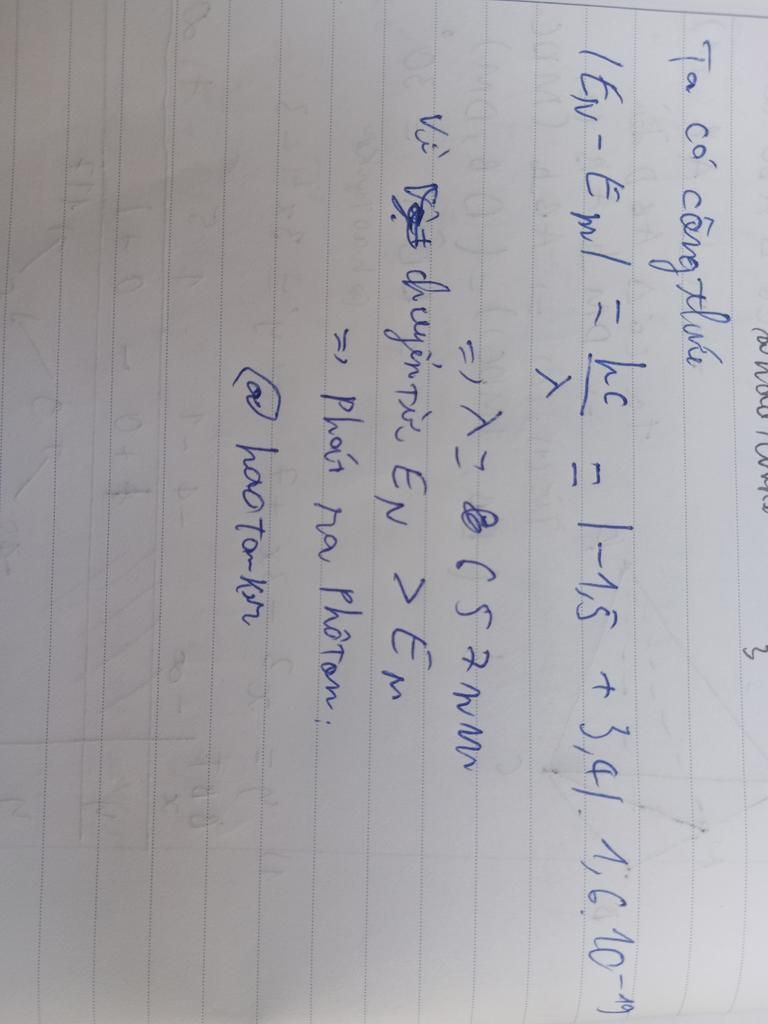 Ta có công thức
|E_N - E_m| = hc/λ = |-1,5 + 3,4| . 1,6.10^-19
=> λ = 657 nm
Vì chuyển từ E_N > E_m
=> phát ra Phôtôn.
@ haotanker
3